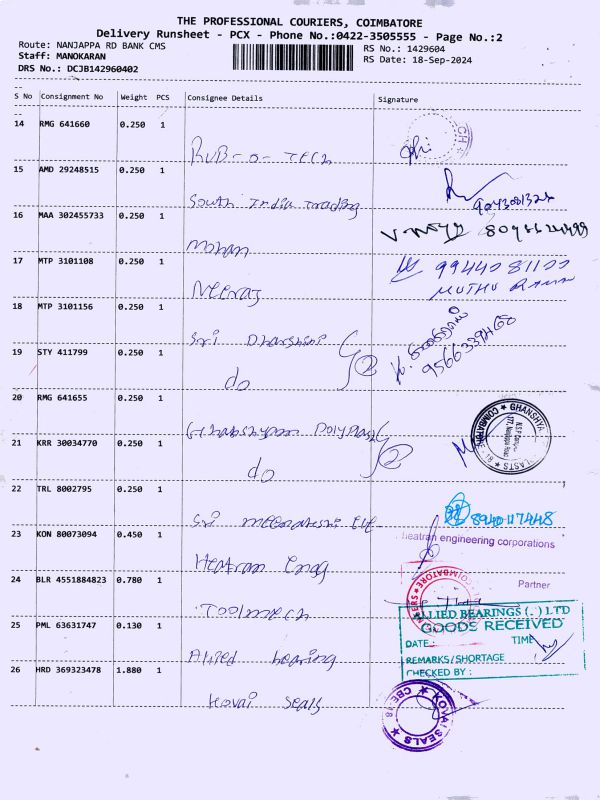 THE PROFESSIONAL COURIERS, COIMBATORE
Delivery Runsheet - PCX - Phone No.:0422-3505555 - Page No.:2
Route: NANJAPPA RD BANK CMS
RS No.: 1429604
Staff: MANOKARAN
RS Date: 18-Sep-2024
DRS No.: DCJB142960402
S No Consignment No Weight PCS Consignee Details Signature
14 RMG 641660 0.250 1
RUB-O-TECH
15 AMD 29248515 0.250 1
South India Trading
16 MAA 302455733 0.250 1
Mohan
17 MTP 3101108 0.250 1
Neeraj
MUTHU RAMAN
18 MTP 3101156 0.250 1
Sri Dharshini
2
19 STY 411799 0.250 1
do
20 RMG 641655 0.250 1
Ghanshyam Polyplast
2
21 KRR 30034770 0.250 1
do
22 TRL 8002795 0.250 1
Sri Meenakshi
8940117448
23 KON 80073094 0.450 1
Heatran Engg
heatran engineering corporations
Partner
24 BLR 4551884823 0.780 1
Toolmech
25 PML 63631747 0.130 1
Allied bearing
ALLIED BEARINGS (.) LTD
GOODS RECEIVED
DATE: TIME
REMARKS/SHORTAGE
CHECKED BY :
26 HRD 369323478 1.880 1
Kovai Seals
KOVAI SEALS
CBE-18